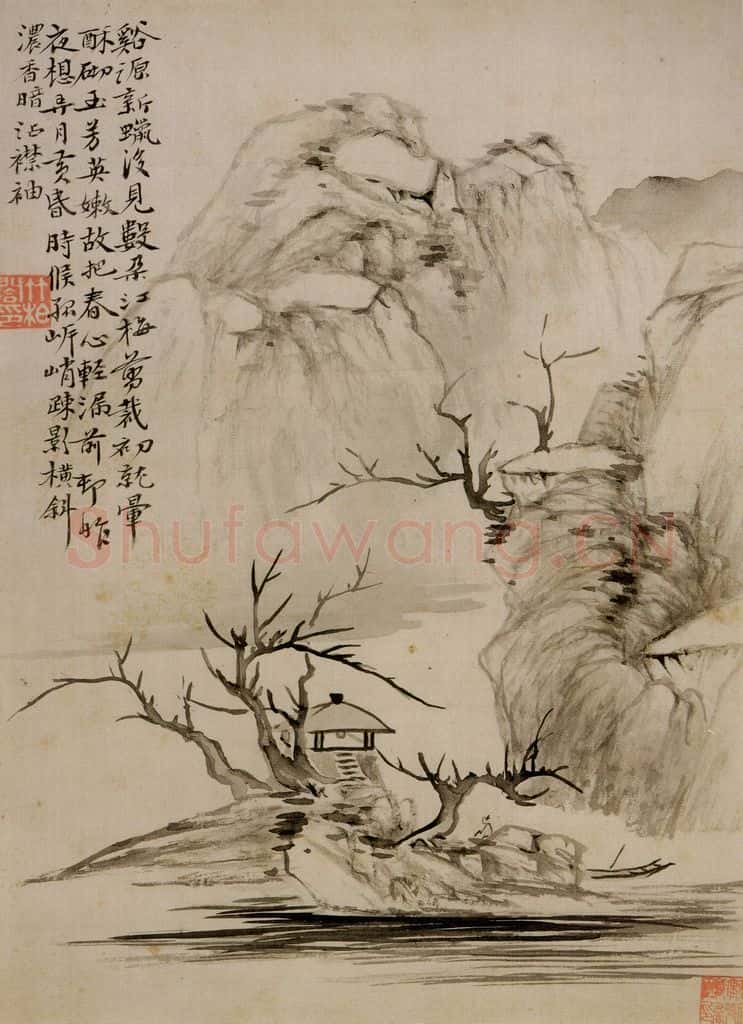 谿源新蠟後見數朵江梅剪裁初就暈
酥砌玉芳英嫩故把春心輕漏前邨昨
夜想弄月黃昏時候孤岸峭疎影橫斜
濃香暗沾襟袖
Shufawang.CN